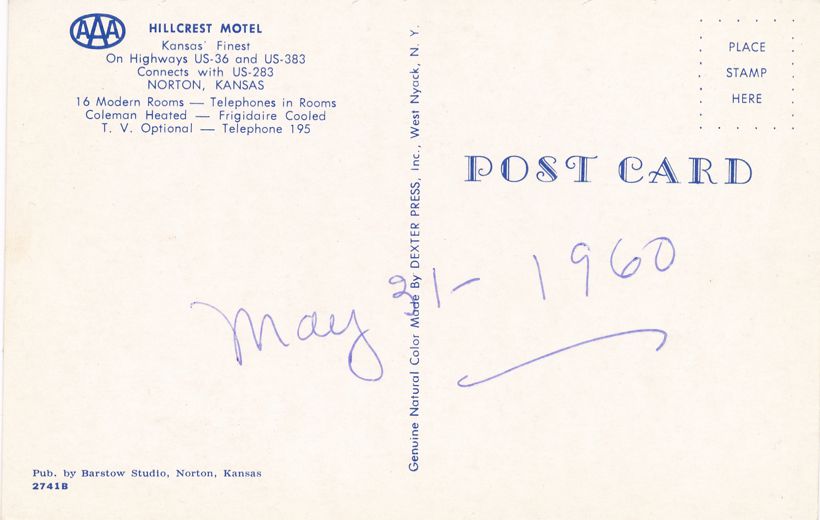 AAA
HILLCREST MOTEL
Kansas' Finest
On Highways US-36 and US-383
Connects with US-283
NORTON, KANSAS
16 Modern Rooms — Telephones in Rooms
Coleman Heated — Frigidaire Cooled
T. V. Optional — Telephone 195
Genuine Natural Color Made By DEXTER PRESS, Inc., West Nyack, N. Y.
PLACE
STAMP
HERE
POST CARD
May 31- 1960
Pub. by Barstow Studio, Norton, Kansas
2741B